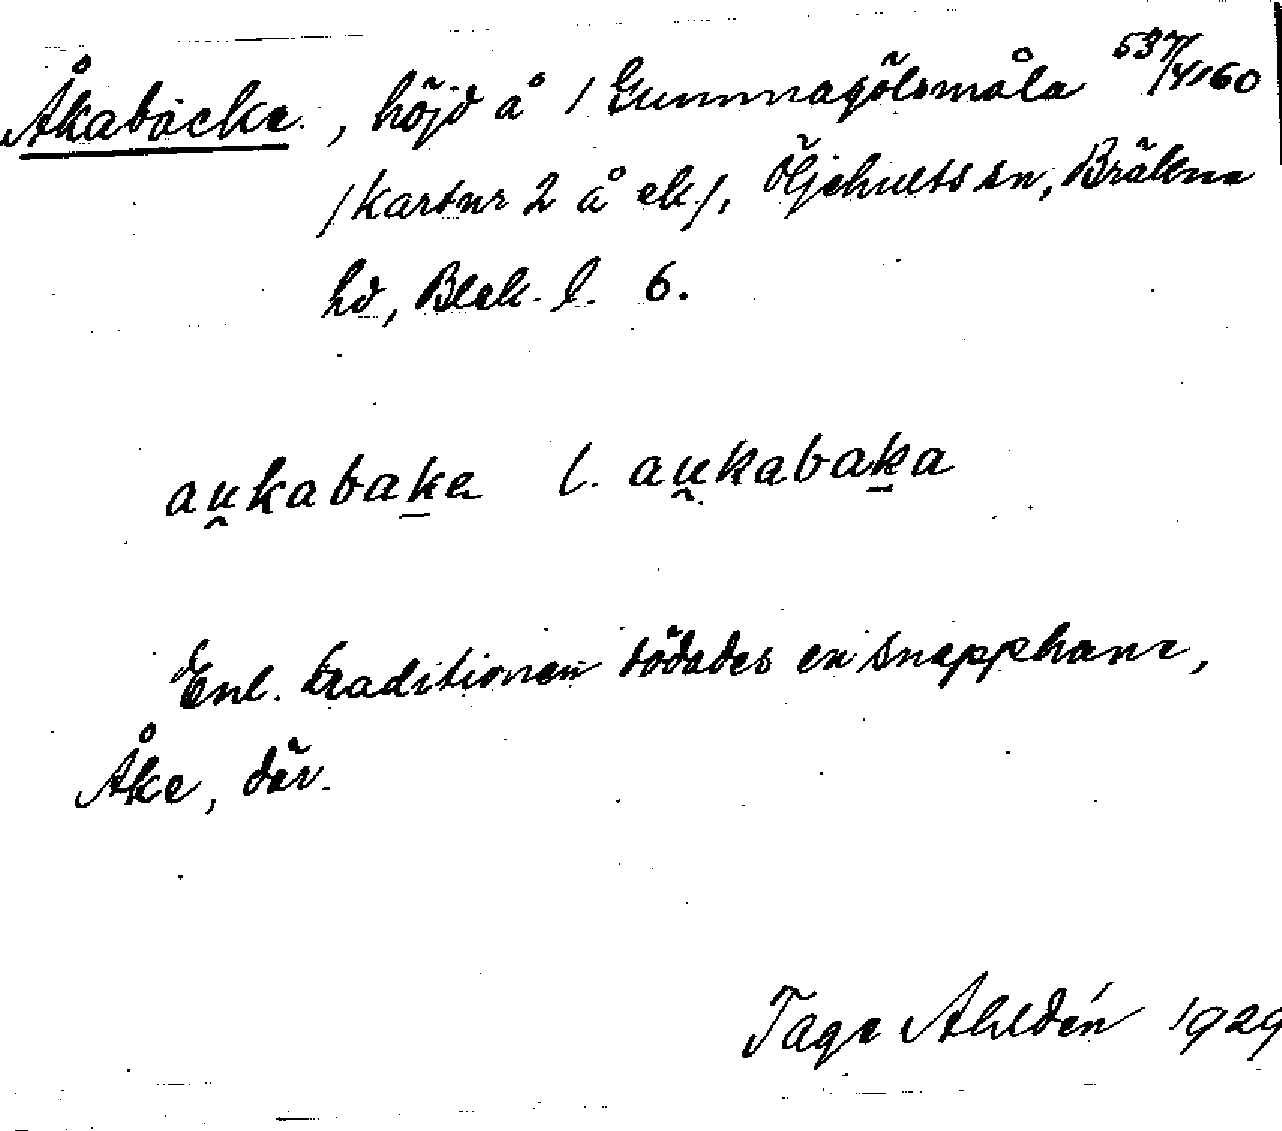 Åkabacke, höjd å 1 Gummagölsmåla 537/4/160
/kartnr 2 å ek/, Öljehults sn, Bräkne
hd, Blek. l. 6.
au̯kabak̠a l. au̯kabak̠a
Enl. traditionen dödades en snapphane,
Åke, där.
Tage Ahldén 1929